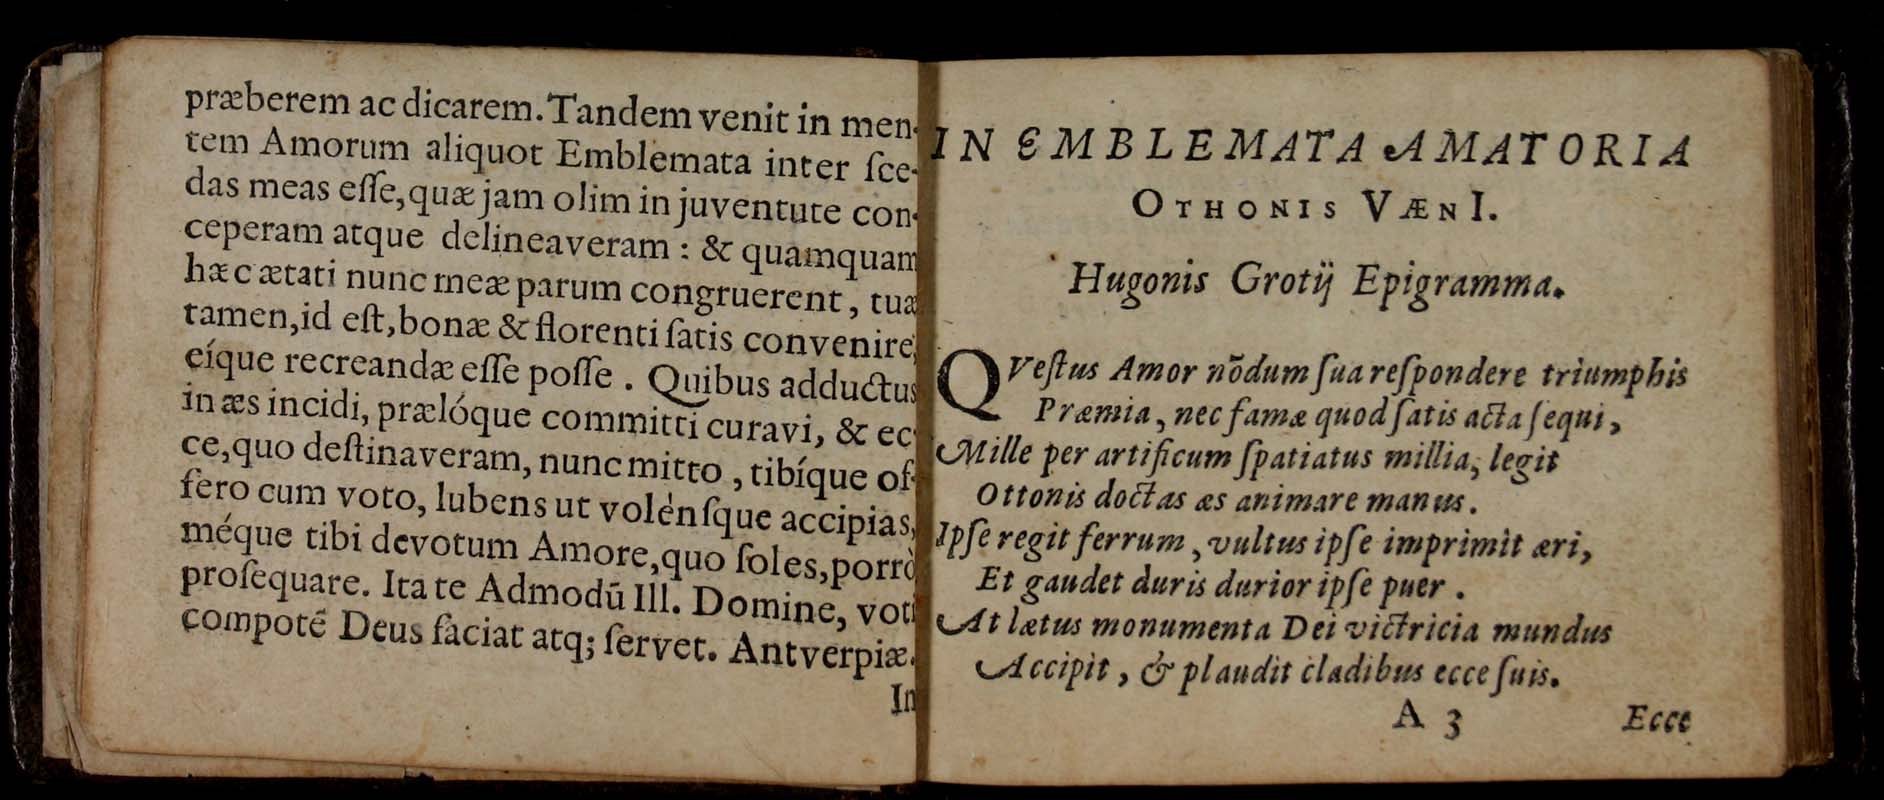 præberem ac dicarem. Tandem venit in men-
tem Amorum aliquot Emblemata inter ſce-
das meas eſſe, quæ jam olim in juventute con-
ceperam atque delineaveram : & quamquam
hæc ætati nunc meæ parum congruerent, tuæ
tamen, id eſt, bonæ & florenti ſatis convenire,
eíque recreandæ eſſe poſſe. Quibus adductus
in æs incidi, prælóque committi curavi, & ec-
ce, quo deſtinaveram, nunc mitto, tibíque of-
fero cum voto, lubens ut volénſque accipias,
méque tibi devotum Amore, quo ſoles, porrò
proſequare. Ita te Admodū Ill. Domine, voti
compotē Deus faciat atq; ſervet. Antverpiæ.
In
IN EMBLEMATA AMATORIA
OTHONIS VÆNI.
Hugonis Grotij Epigramma.
QVeſtus Amor nōdum ſua reſpondere triumphis
Præmia, nec famæ quod ſatis acta ſequi,
Mille per artificum ſpatiatus millia, legit
Ottonis doctas æs animare manus.
Ipſe regit ferrum, vultus ipſe imprimit æri,
Et gaudet duris durior ipſe puer.
At lætus monumenta Dei victricia mundus
Accipit, & plaudit cladibus ecce ſuis.
A 3
Ecce